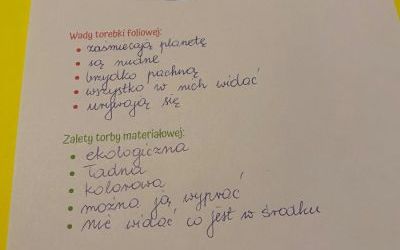 Wady torebki foliowej:
• zaśmiecają planetę
• są nudne
• brzydko pachną
• wszystko w nich widać
• urywają się
Zalety torby materiałowej:
• ekologiczna
• ładna
• kolorowa
• można ją wyprać
• nie widać co jest w środku